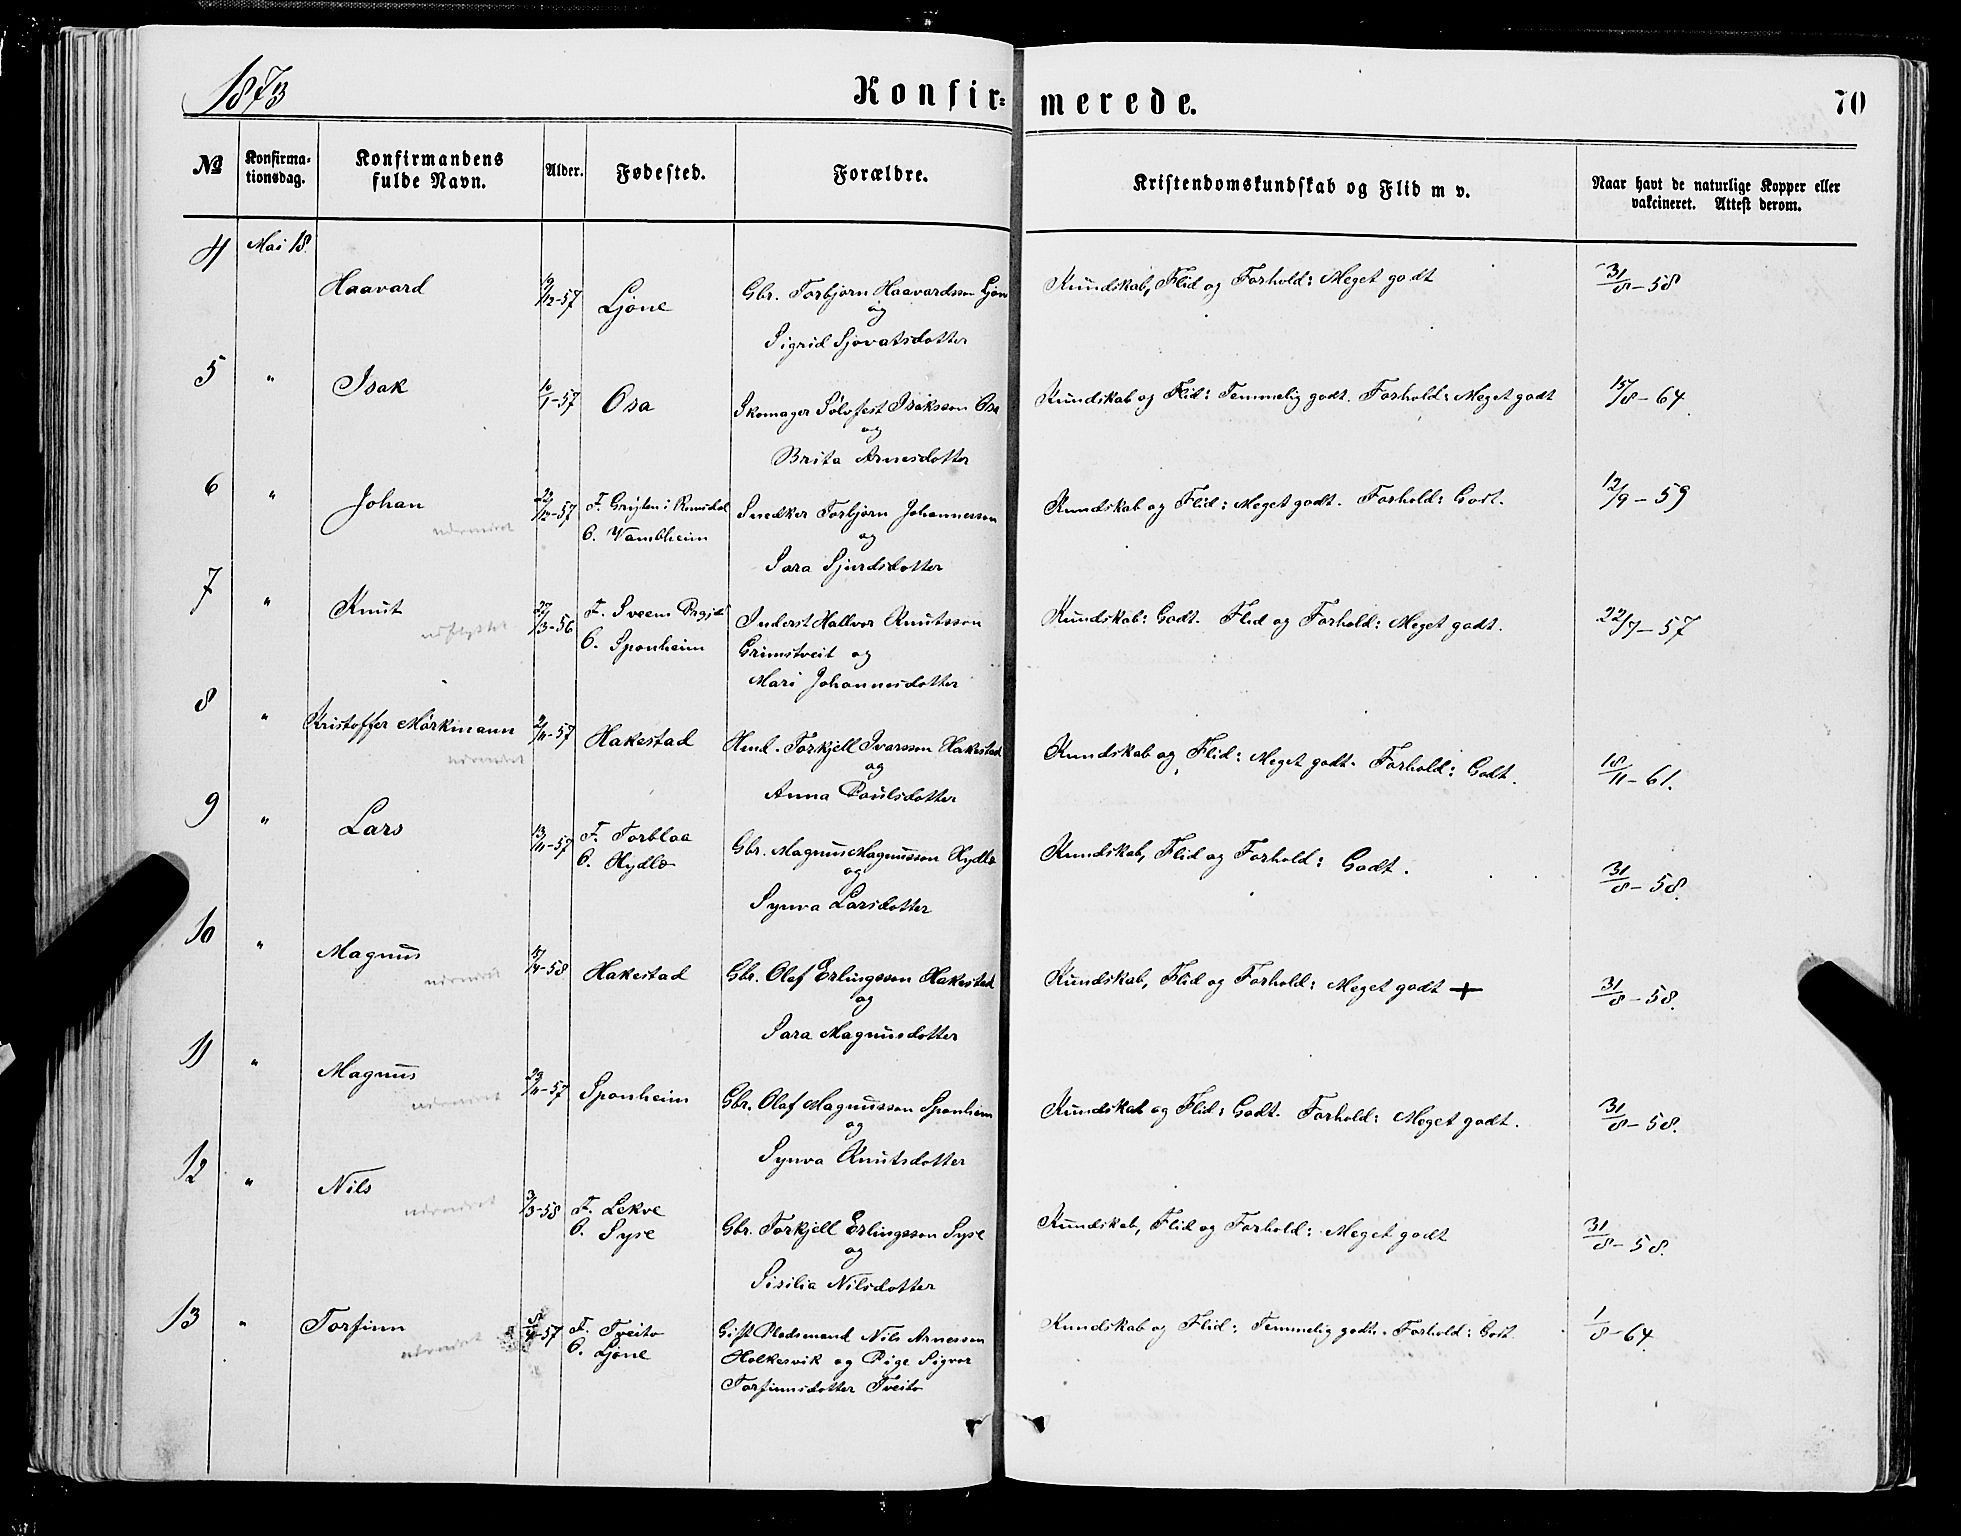 1873
Konfir=
merede.
70
No
Konfirma-
tionsdag.
Konfirmandens
fulde Navn.
Alder.
Fødested.
Forældre.
Kristendomskundskab og Flid m v.
Naar havt de naturlige Kopper eller
vakcineret. Attest derom.
4 Mai 18.
Haavard
/12-57
Ljone
Gbr. Torbjørn Haavardsson Ljone
og
Sigrid Sjovatsdotter
Kundskab, Flid og Forhold: Meget godt
31/8-58
5 " Isak
10/1-57
Osa
Skomager Sølvfest Isaksson Osa
og
Brita Arnesdotter
Kundskab og Flid: Temmelig godt. Forhold: Meget godt
15/8-64.
6 " Johan
22/12-57
F. Gryten i Romsdal
O. Vambheim
Snedker Torbjørn Johannesson
og
Sara Sjurdsdotter
Kundskab og Flid: Meget godt. Forhold: Godt.
12/9-59
7 " Knut
udflyttet
27/3-56
F. Sveem
O. Sponheim
Inderst Hallvor Knutsson
Grimstveit og
Mari Johannesdotter
Kundskab: Godt. Flid og Forhold: Meget godt.
22/7-57
8 " Kristoffer Mörkmann
2/11-57
Hakestad
Hmd. Torkjell Ivarsson Hakestad
og
Anna Poulsdotter
Kundskab og Flid: Meget godt. Forhold: Godt.
18/11-61.
9 " Lars
13/11-57
F. Torblaa
O. Hydle
Gbr. Magnus Magnusson Hydle
og
Synva Larsdotter
Kundskab, Flid og Forhold: Godt.
31/8-58.
10 " Magnus
15/4-58
Hakestad
Gbr. Olaf Erlingsson Hakestad
og
Sara Magnusdotter
Kundskab, Flid og Forhold: Meget godt +
31/8-58.
11 " Magnus
29/11-57
Sponheim
Gbr. Olaf Magnusson Sponheim
og
Synva Knutsdotter
Kundskab og Flid: Godt. Forhold: Meget godt.
31/8-58.
12 " Nils
3/3-58
F. Lekve
O. Syse
Gbr. Torkjell Erlingsson Syse
og
Sisilia Nilsdotter
Kundskab, Flid og Forhold: Meget godt
31/8-58.
13 " Torfinn
-57
F. Tveito
O. Ljone
Gift Pladsmand Nils Arnesson
Holkesvik og Pige Sigvor
Torfinnsdotter Tveito
Kundskab og Flid: Temmelig godt. Forhold: Godt
1/8-64.